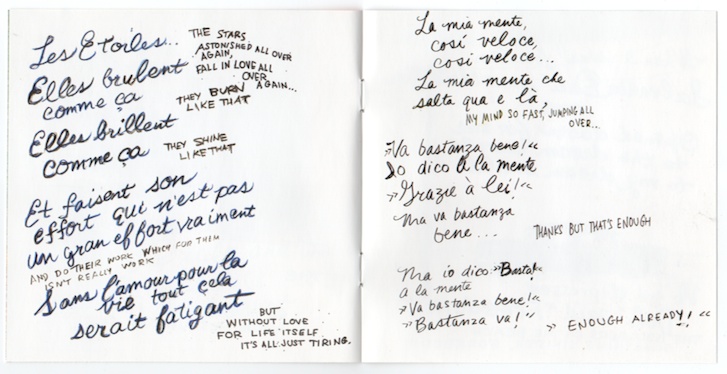 Les Etoiles...
THE STARS
ASTONISHED ALL OVER
AGAIN,
FALL IN LOVE ALL
OVER
AGAIN...
Elles brulent
comme ça
THEY BURN
LIKE THAT
Elles brillent
comme ça
THEY SHINE
LIKE THAT
Et faisent son
effort qui n'est pas
un gran effort vraiment
AND DO THEIR WORK WHICH FOR THEM
ISN'T REALLY WORK
Sans l'amour pour la
vie tout çela
serait fatigant
BUT
WITHOUT LOVE
FOR LIFE ITSELF
IT'S ALL JUST TIRING.
La mia mente,
così veloce,
così veloce...
La mia mente che
salta qua e là,
MY MIND SO FAST, JUMPING ALL
OVER...
»Va bastanza bene!«
Io dico a la mente
»Grazie à lei!«
Ma va bastanza
bene...
THANKS BUT THAT'S ENOUGH
Ma io dico »Basta!«
a la mente
»Va bastanza bene!«
»Bastanza va!«
» ENOUGH ALREADY! «